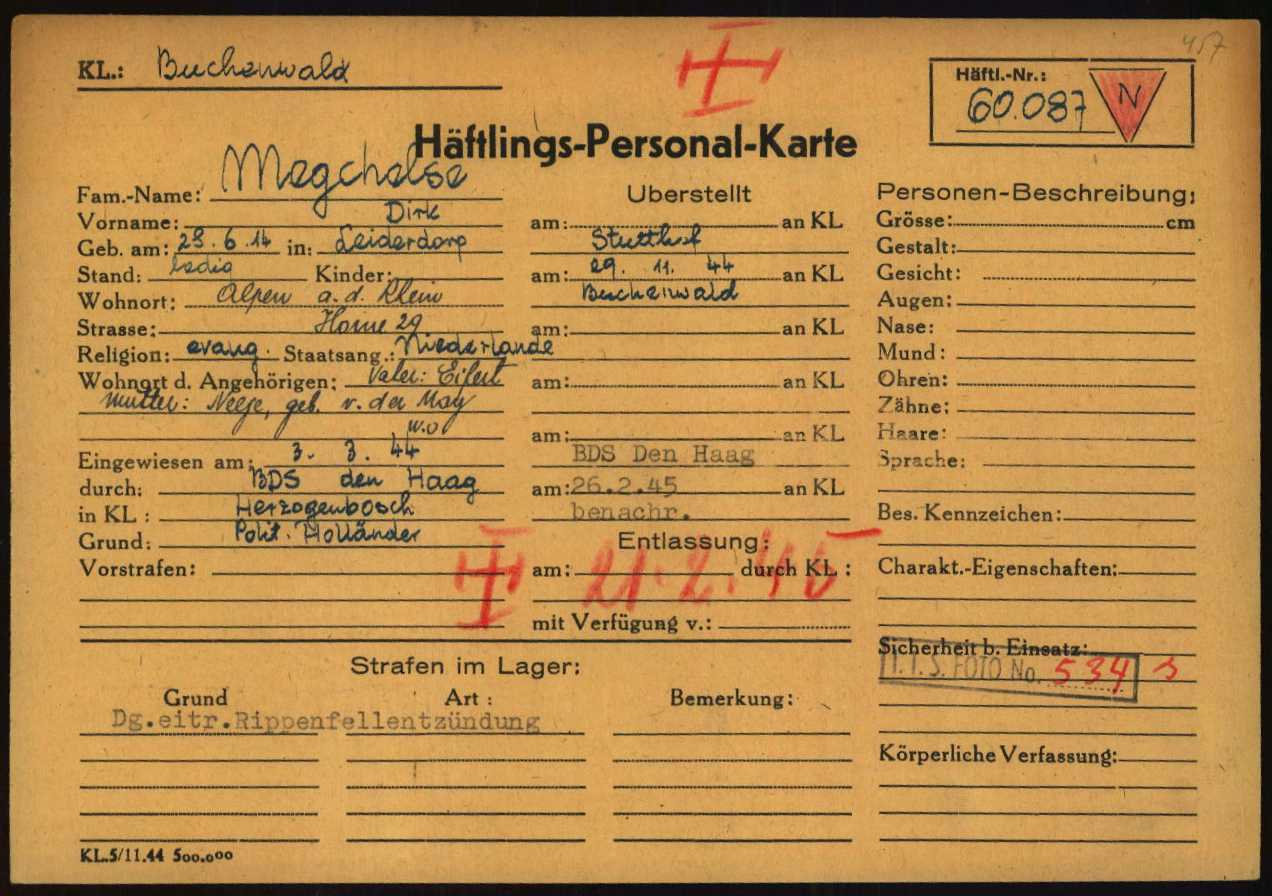 457
KL.: Buchenwald
Häftl.-Nr.:
60.087 N
Häftlings-Personal-Karte
Fam.-Name: Megchelse
Vorname: Dirk
Geb. am: 29.6.14 in: Leiderdorp
Stand: ledig Kinder:
Wohnort: Alpen a. d. Rhein
Strasse: Horne 29
Religion: evang. Staatsang.: Niederlande
Wohnort d. Angehörigen: Vater: Eifert
Mutter: Neeje, geb. v. der May
w.o
Eingewiesen am: 3. 3. 44
durch: BDS den Haag
in KL : Herzogenbosch
Grund: Polit. Holländer
Vorstrafen:
Uberstellt
am: an KL
Stutthof
am: 29. 11. 44 an KL
Buchenwald
am: an KL
am: an KL
am: an KL
BDS Den Haag
am: 26.2.45 an KL
benachr.
Entlassung:
am: 21.2.45 durch KL :
mit Verfügung v.:
Personen-Beschreibung:
Grösse: cm
Gestalt:
Gesicht:
Augen:
Nase:
Mund:
Ohren:
Zähne:
Haare:
Sprache:
Bes. Kennzeichen:
Charakt.-Eigenschaften:
Sicherheit b. Einsatz:
I.T.S. FOTO No. 534
Körperliche Verfassung:
Strafen im Lager:
Grund Art : Bemerkung:
Dg.eitr.Rippenfellentzündung
KL.5/11.44 500.000